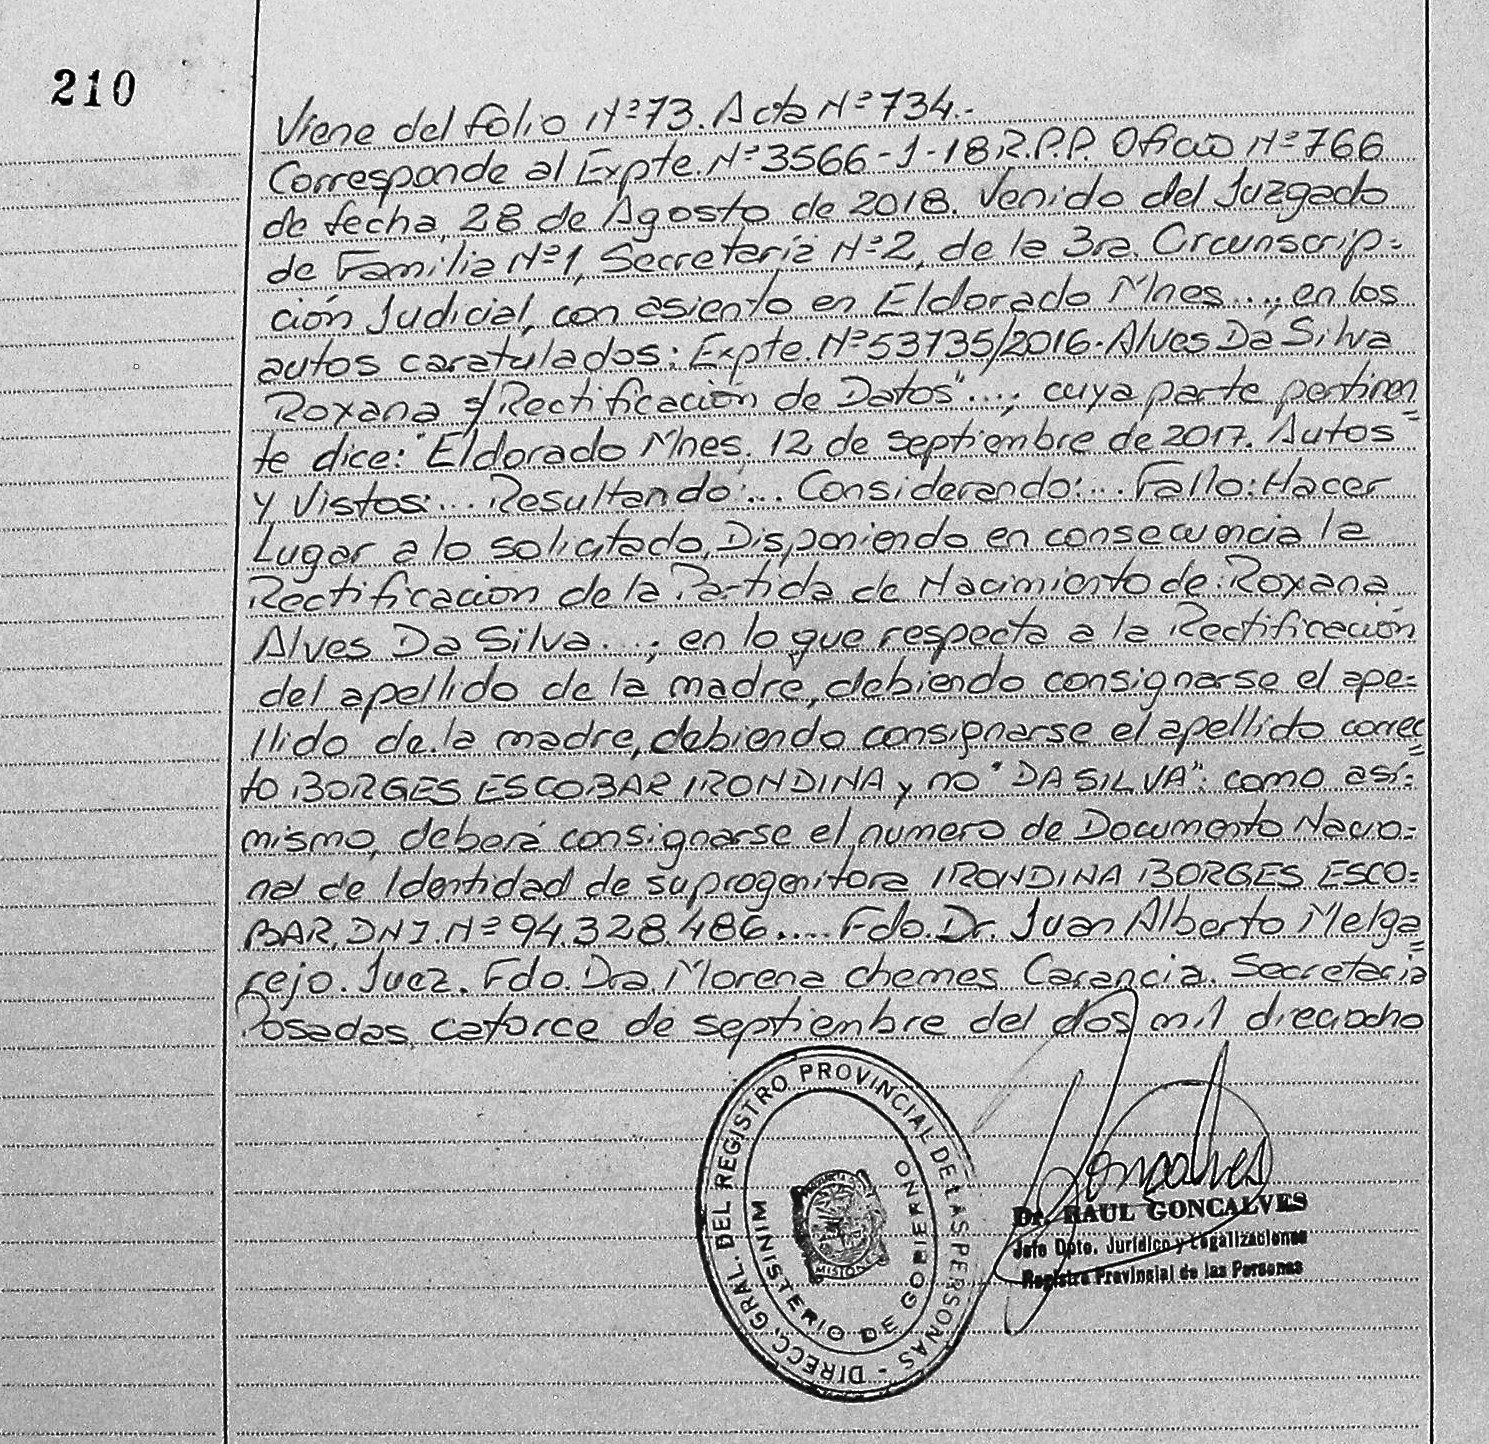 210
Viene del folio Nº 73. Acta Nº 734.-
Corresponde al Expte. Nº 3566-1-18 R.P.P. Oficio Nº 766
de fecha, 28 de Agosto de 2018. Venido del Juzgado
de Familia Nº 1, Secretaría Nº 2, de la 3ra. Circunscrip=
ción Judicial, con asiento en Eldorado Mnes...; en los
autos caratulados: Expte. Nº 53735/2016. Alves Da Silva
Roxana s/Rectificación de Datos"...; cuya parte pertinen=
te dice: "Eldorado Mnes. 12 de septiembre de 2017. Autos
y Vistos:... Resultando:... Considerando:... Fallo: Hacer
Lugar a lo solicitado, Disponiendo en consecuencia la
Rectificación de la Partida de Nacimiento de: Roxana
Alves Da Silva...; en lo que respecta a la Rectificación
del apellido de la madre, debiendo consignarse el ape=
llido de la madre, debiendo consignarse el apellido correc=
to BORGES ESCOBAR IRONDINA y no "DA SILVA": como así=
mismo, deberá consignarse el numero de Documento Nacio=
nal de Identidad de su progenitora IRONDINA BORGES ESCO=
BAR, DNI. Nº 94.328.486..... Fdo. Dr. Juan Alberto Melga=
rejo. Juez. Fdo. Dra. Morena Chemes Carancia. Secretaria
Posadas, catorce de septiembre del dos mil dieciocho
DIRECC. GRAL. DEL REGISTRO PROVINCIAL DE LAS PERSONAS -
MINISTERIO DE GOBIERNO
MISIONES
Goncalves
Dr. RAUL GONCALVES
Jefe Dpto. Jurídico y Legalizaciones
Registro Provincial de las Personas